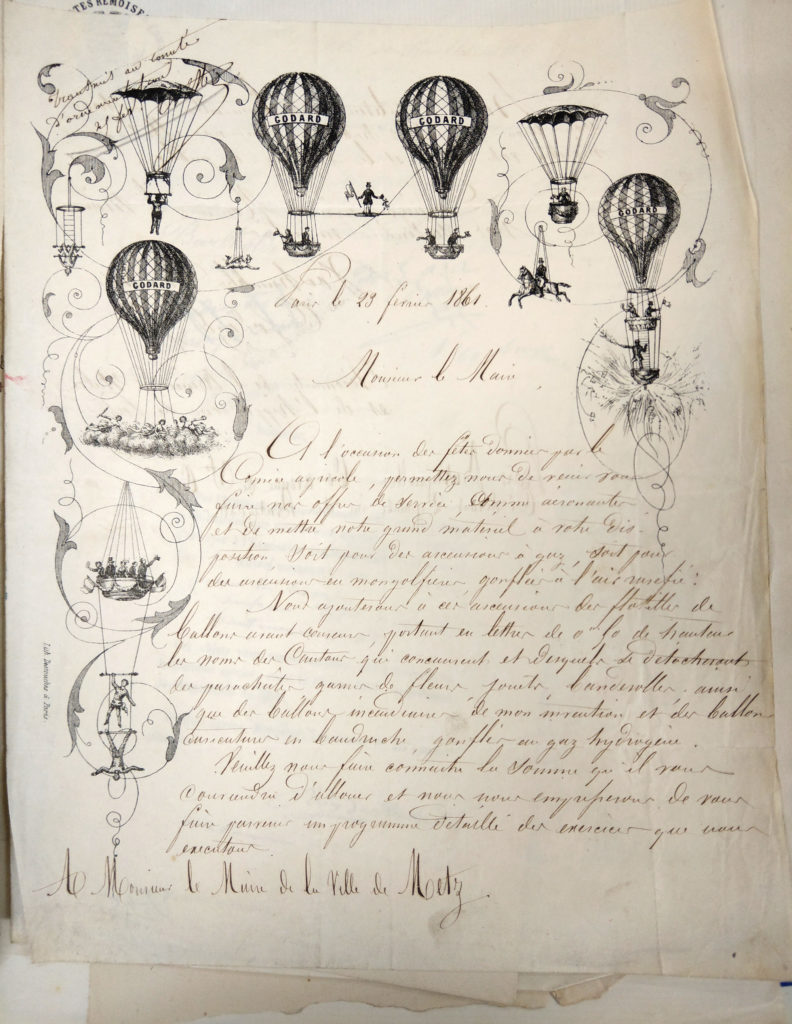 TES RÉMOISE
transmis au comité
GODARD
GODARD
GODARD
GODARD
Paris le 23 février 1861.
Monsieur le Maire
A l'occasion des fêtes données par le
Comice agricole, permettez nous de venir vous
faire nos offres de service, comme aéronautes
et de mettre notre grand matériel à votre dis-
position soit pour des ascensions à gaz, soit pour
des ascensions en mongolfières gonflées à l'air raréfié.
Nous ajouterons à ces ascensions des flotilles de
ballons avant coureurs, portant en lettres de 0 50 de hauteur
les noms des Cantons qui concourent et desquels se détacheront
des parachutes garnis de fleurs, jouets, banderolles ainsi
que des ballons incendiaires de mon invention et des ballons
caricatures en baudruche gonflés au gaz hydrogène.
Veuillez nous faire connaître la somme qu'il vous
conviendra d'allouer et nous nous empresserons de vous
faire parvenir un programme détaillé des exercices que nous
executons.
A Monsieur le Maire de la Ville de Metz